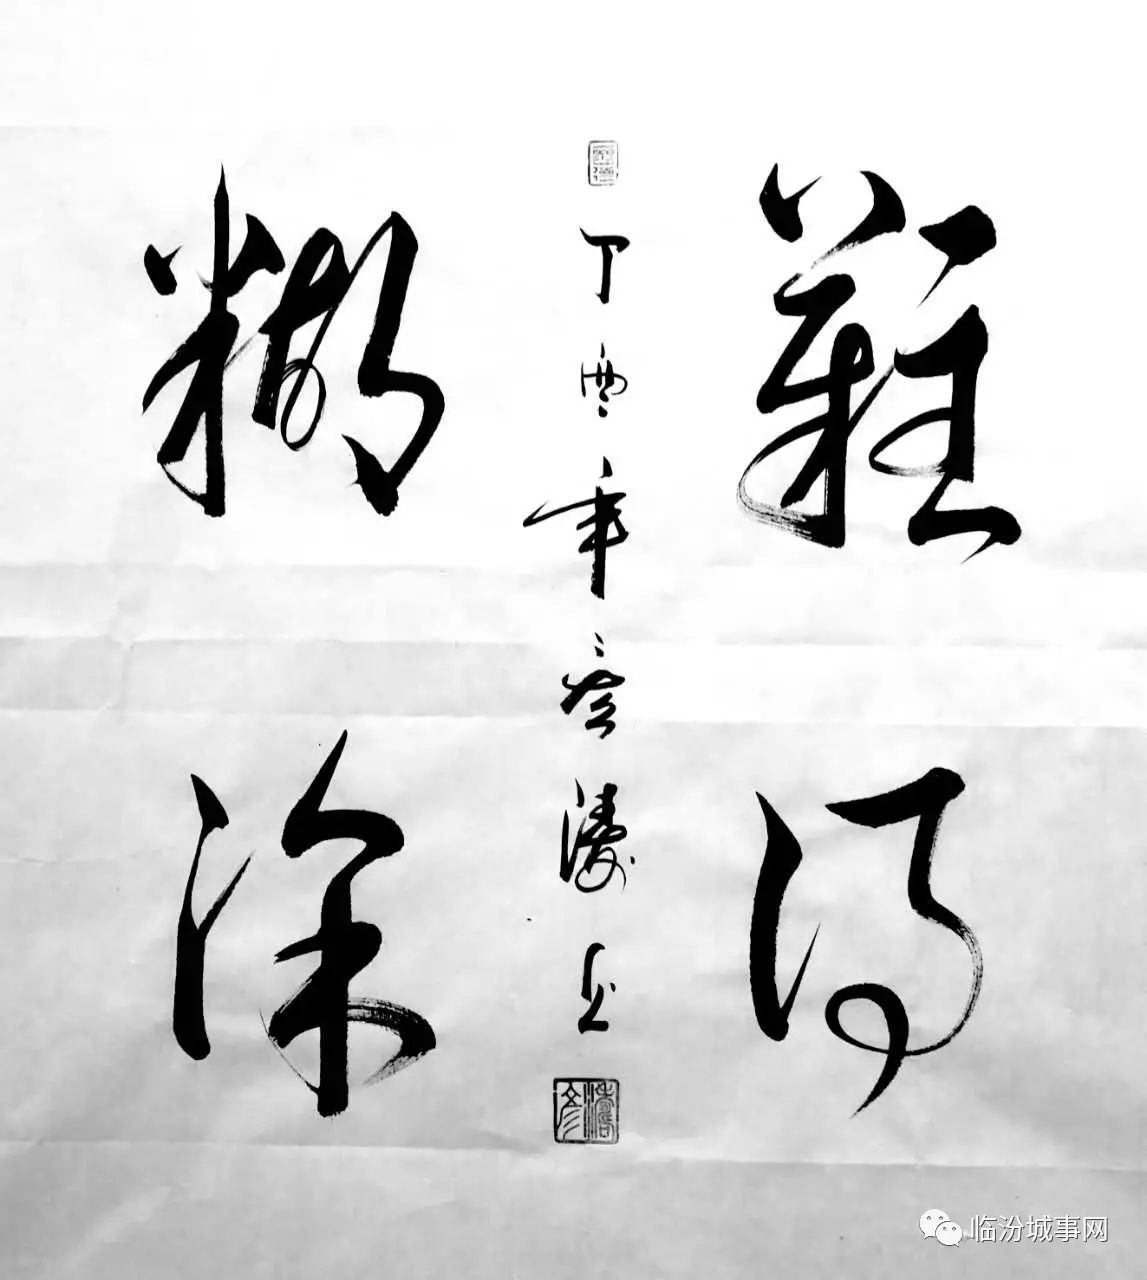 難得
糊涂
丁酉年彦濤书
临汾城事网